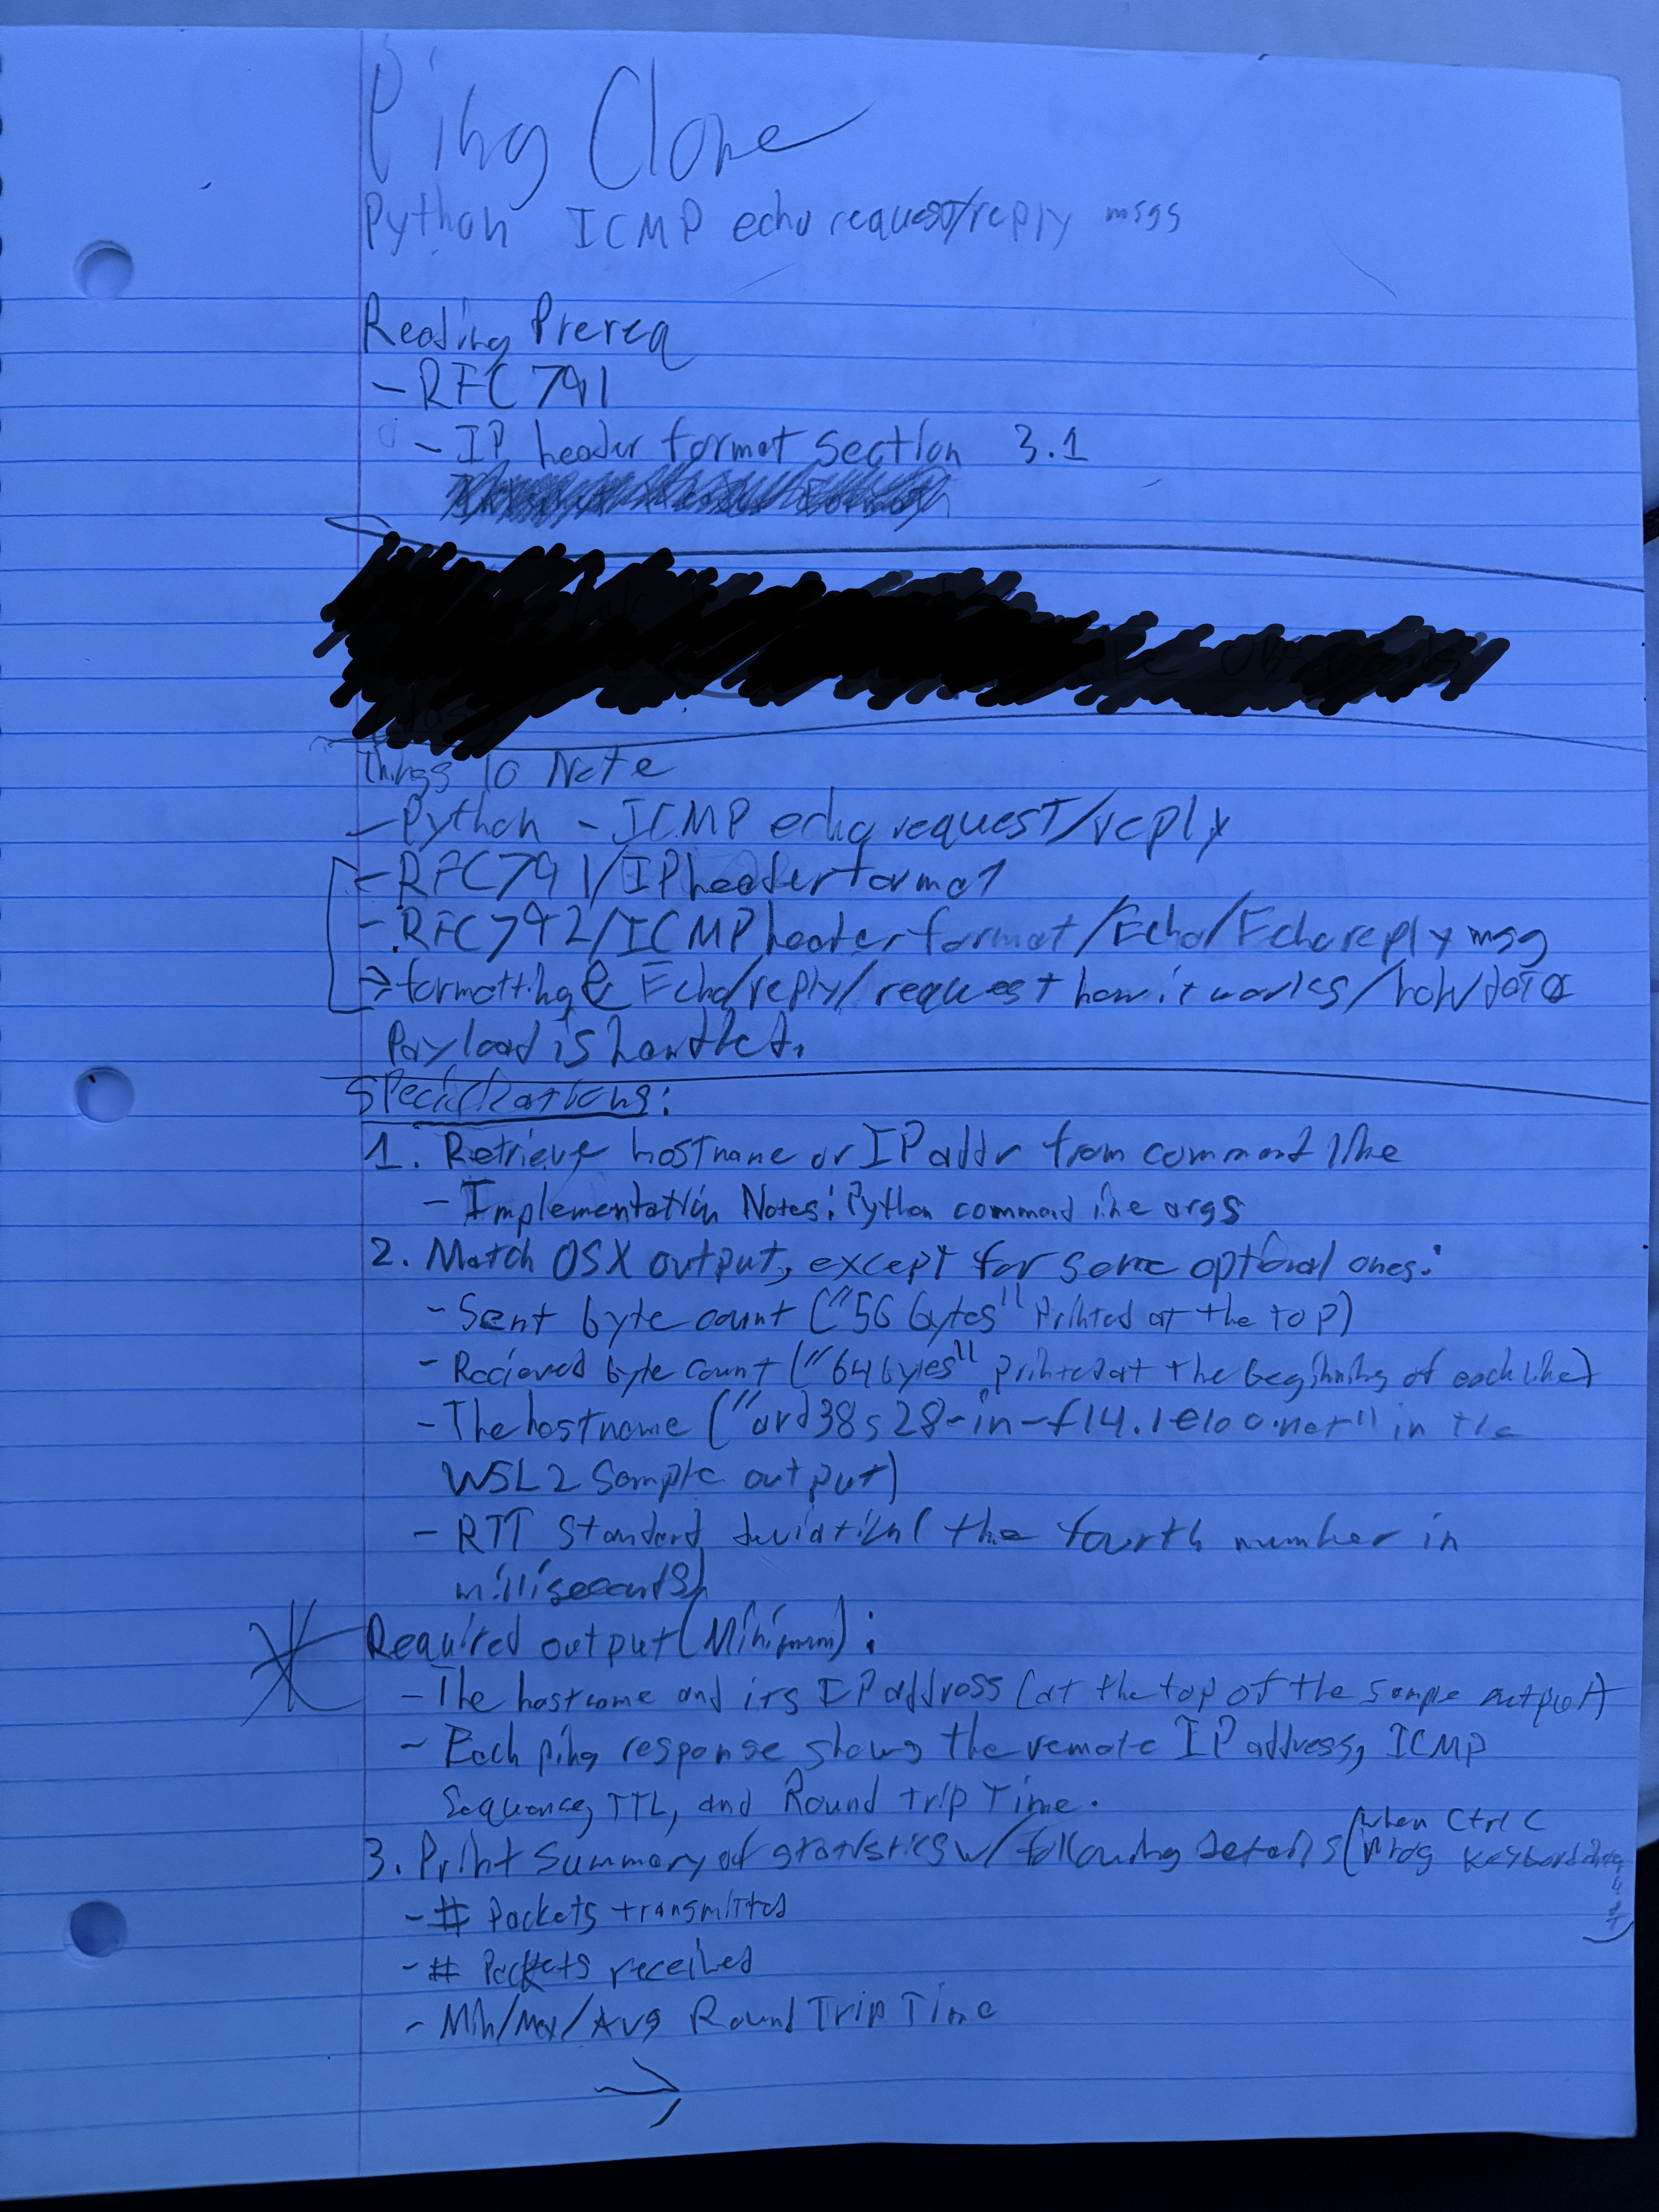 Ping Clone
Python ICMP echo request/reply msgs
Reading Prereq
- RFC 791
- IP header format section 3.1
Things To Note
- Python - ICMP echo request/reply
- RFC791/IP header format
- RFC792/ICMP header format/Echo/Echo reply msg
→ formatting & Echo/reply/request how it works/how data
Payload is handled.
Specifications:
1. Retrieve hostname or IP addr from command line
- Implementation Notes: Python command line args
2. Match OSX output, except for some optional ones:
- Sent byte count ("56 bytes" Printed at the top)
- Recieved byte count ("64 bytes" printed at the beginning of each line)
- The hostname ("ord38s28-in-f14.1e100.net" in the
WSL2 Sample output)
- RTT Standard deviation (the fourth number in
milliseconds)
Required output (Minimum):
- The hostname and its IP address (at the top of the sample output)
- Each ping response shows the remote IP address, ICMP
Sequence, TTL, and Round trip Time.
3. Print Summary of statistics w/ following details (when Ctrl C
Keyboard
- # Packets transmitted
- # Packets received
- Min/Max/Avg Round Trip Time
→